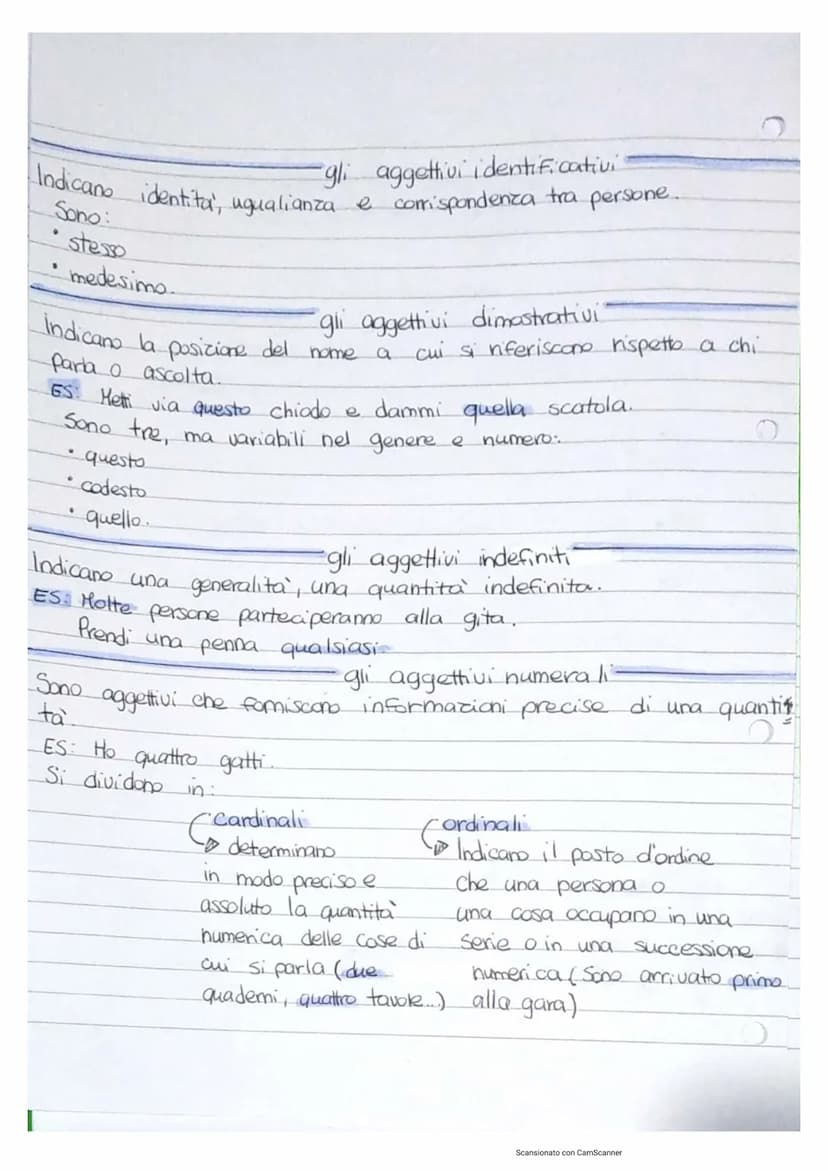 gli aggettivi identificativi
Indicano identità, ugualianza e corrispondenza tra persone.
Sono:
• stesso
• medesimo.
gli aggettivi dimostrativi
Indicano la posizione del nome a cui si riferiscono rispetto a chi
parla o ascolta.
ES: Metti via questo chiodo e dammi quella scatola.
Sono tre, ma variabili nel genere e numero:
• questo
• codesto
• quello.
gli aggettivi indefiniti
Indicano una generalità, una quantità indefinita.
ES: Molte persone parteciperanno alla gita.
Prendi una penna qualsiasi
gli aggettivi numerali
Sono aggettivi che forniscono informazioni precise di una quanti
tà.
ES: Ho quattro gatti.
Si dividono in:
Cardinali
determinano
in modo preciso e
assoluto la quantità
numerica delle cose di
cui si parla (due
quaderni, quattro tavole...)
ordinali
Indicano il posto d'ordine
che una persona o
una cosa occupano in una
serie o in una successione
numerica (Sono arrivato primo
alla gara)
Scansionato con CamScanner